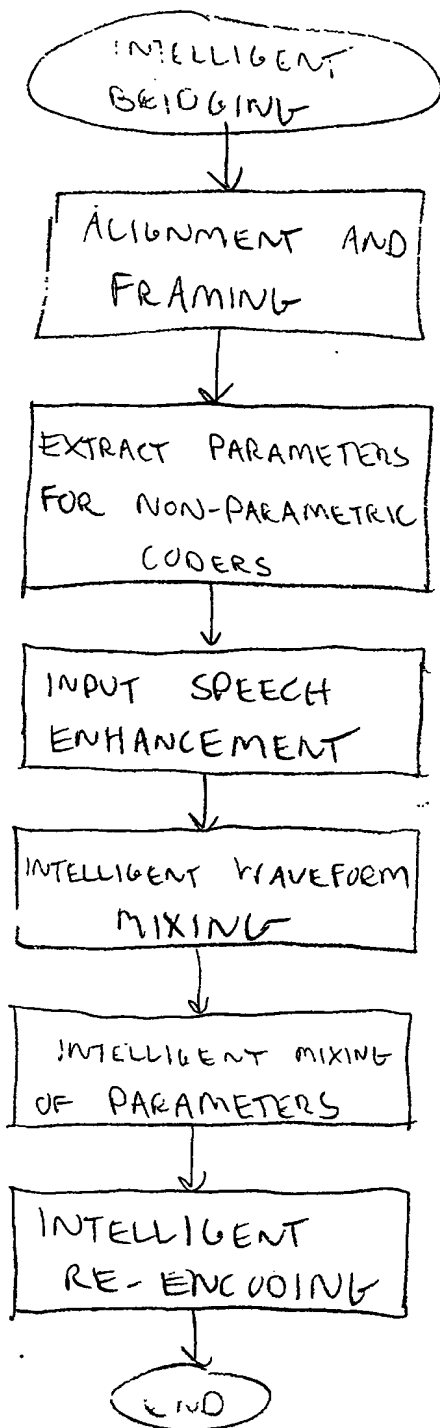 INTELLIGENT
BRIDGING
ALIGNMENT AND
FRAMING
EXTRACT PARAMETERS
FOR NON-PARAMETRIC
CODERS
INPUT SPEECH
ENHANCEMENT
INTELLIGENT WAVEFORM
MIXING
INTELLIGENT MIXING
OF PARAMETERS
INTELLIGENT
RE-ENCODING
END